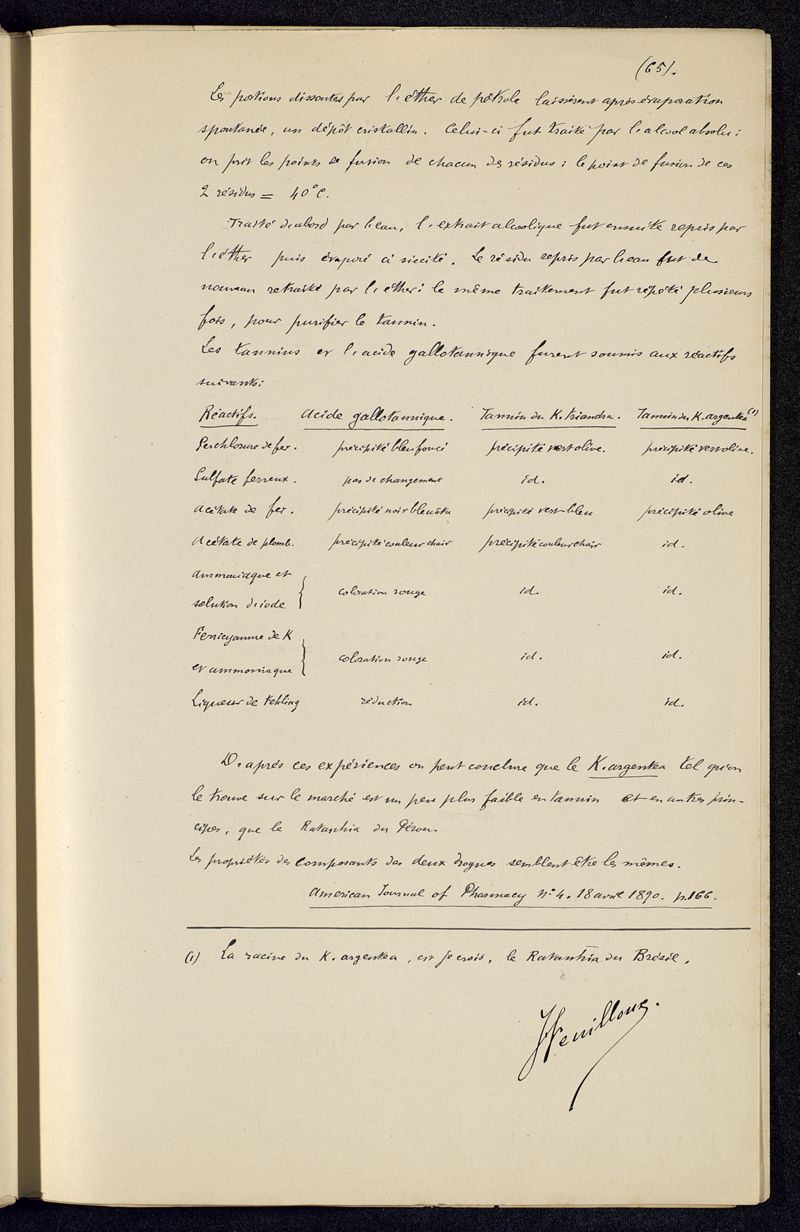 (65).
Les portions dissoutes par l'éther de pétrole laissèrent après évaporation
spontanée, un dépôt cristallin. Celui-ci fut traité par l'alcool absolu:
on prit les points de fusion de chacun des résidus: le point de fusion de ces
2 résidus = 40°C.
Traité d'abord par l'eau, l'extrait alcoolique fut ensuite repris par
l'éther puis évaporé à siccité. Le résidu repris par l'eau fut de
nouveau retraité par l'éther: le même traitement fut répété plusieurs
fois, pour purifier le tannin.
Les tannins et l'acide gallotannique furent soumis aux réactifs
suivants:
Réactifs. Acide gallotannique. Tannin du K. triandra. Tannin du K. argentea (1)
Perchlorure de fer. précipité bleu foncé précipité vert olive. précipité vert olive.
Sulfate ferreux. pas de changement id. id.
Acétate de fer. précipité noir bleuâtre précipité vert-bleu précipité olive
Acétate de plomb. précipité couleur chair précipité couleur chair id.
Ammoniaque et
solution d'iode } coloration rouge id. id.
Ferricyanure de K
et ammoniaque } coloration rouge id. id.
Liqueur de Fehling réduction id. id.
D'après ces expériences on peut conclure que le K. argentea tel qu'on
le trouve sur le marché est un peu plus faible en tannin et en autres prin-
cipes, que le Ratanhia du Pérou.
Les propriétés des composants des deux drogues semblent être les mêmes.
American Journal of Pharmacy n° 4. 18 avril 1890. p.166.
(1) La racine du K. argentea, est je crois, le Ratanhia du Brésil.